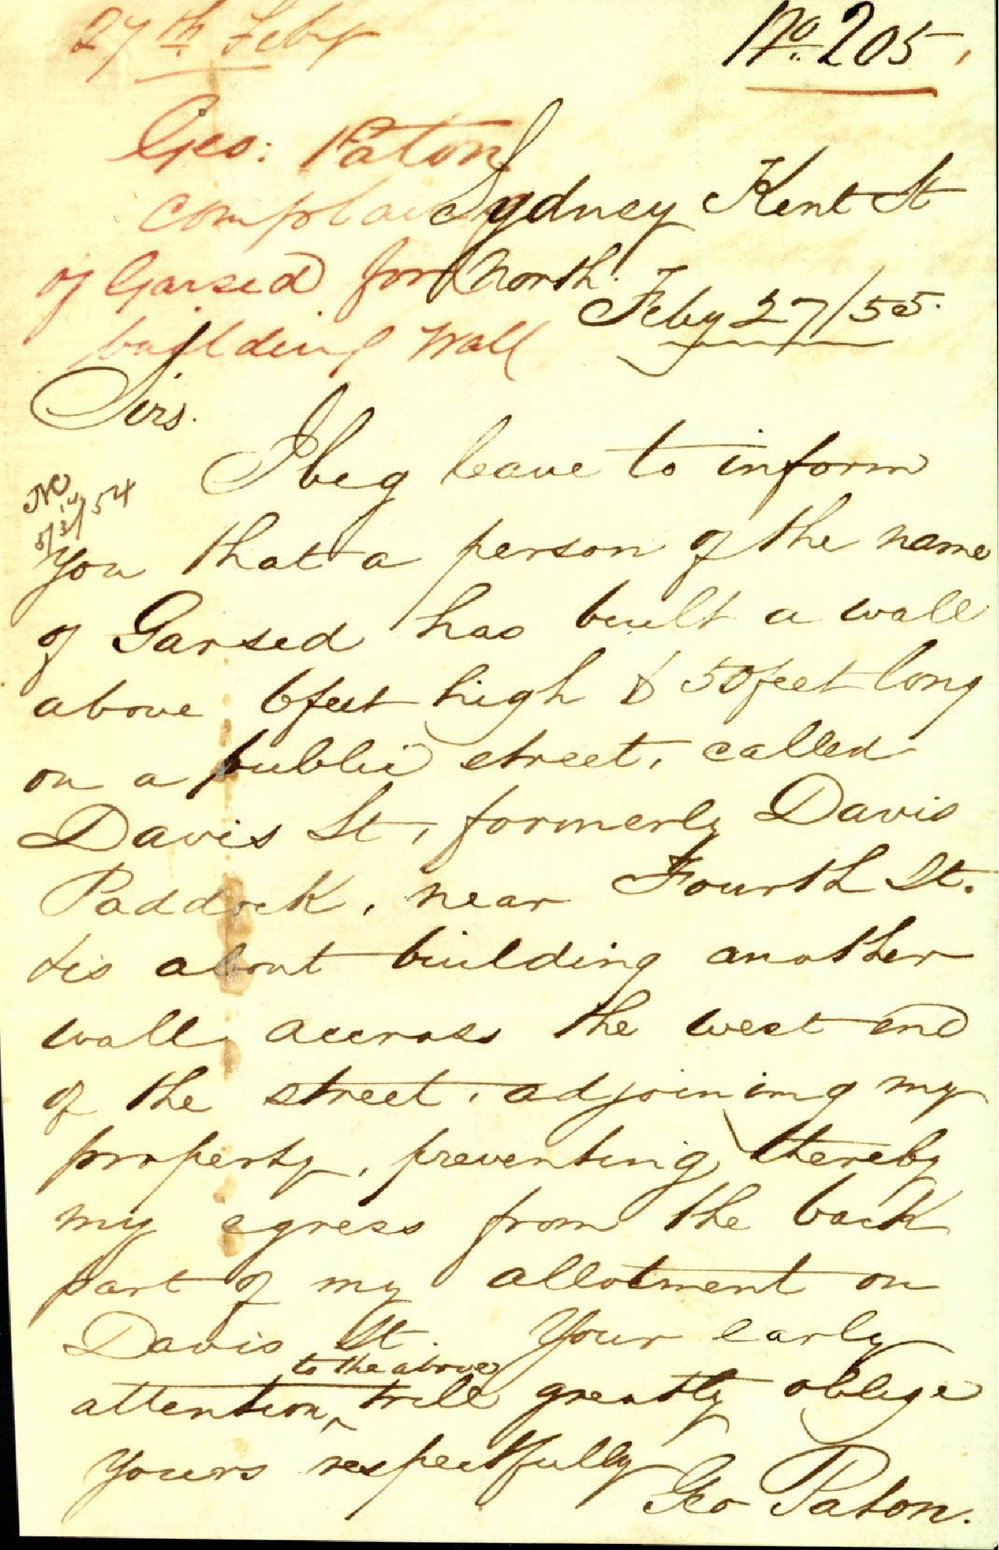 27th Feby
No. 205.
Geo: Paton
complains
of Garsed for
building Wall
Sydney Kent St
North.
Feby 27/55.
Sirs.
I beg leave to inform
54
you that a person of the name
of Garsed has built a wall
above 6 feet high & 50 feet long
on a public street, called
Davis St, formerly Davis
Paddock, near Fourth St.
& is about building another
wall accross the west end
of the street, adjoining my
property, preventing thereby
my egress from the back
part of my allotment on
Davis St. Your early
to the above
attention, will greatly oblige
Yours respectfully
Geo Paton.